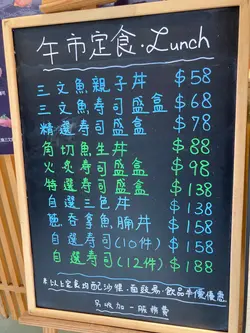 午市定食·Lunch
三文魚親子丼 $58
三文魚壽司盛盒 $68
精選壽司盛盒 $78
角切魚生丼 $88
火炙壽司盛盒 $98
特選壽司盛盒 $138
自選三色丼 $138
蔥吞拿魚腩丼 $158
自選壽司(10件) $158
自選壽司(12件) $188
*以上定食均配沙律、麵豉湯、飲品半價優惠
另收加一服務費